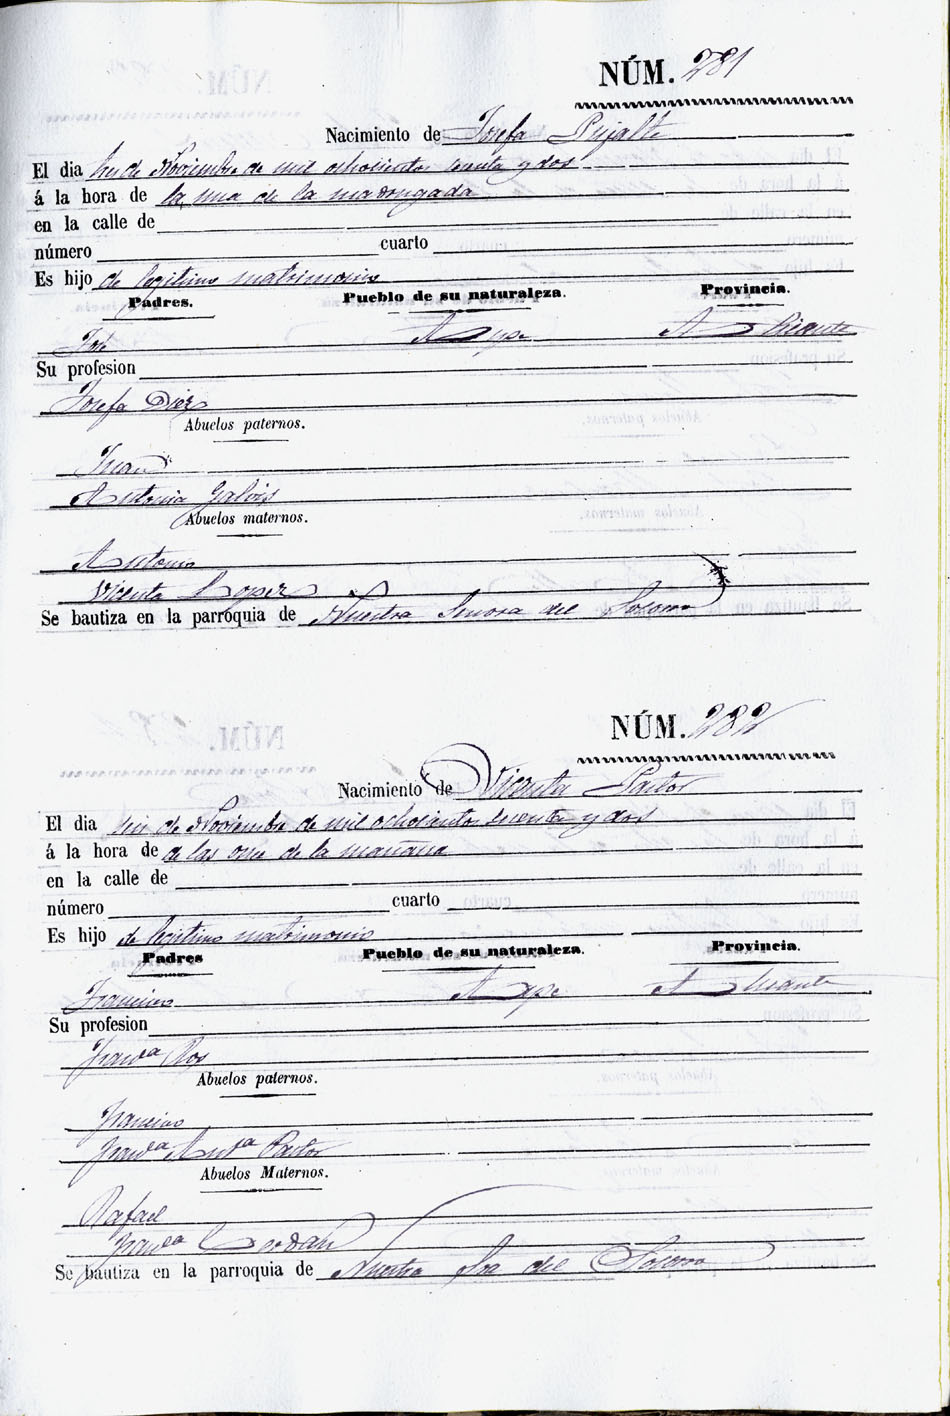 NÚM. 281
Nacimiento de Josefa Pujalte
El dia seis de Noviembre de mil ochocientos sesenta y dos
á la hora de la una de la madrugada
en la calle de
número cuarto
Es hijo de legitimo matrimonio
Padres. Pueblo de su naturaleza. Provincia.
José Aspe Alicante
Su profesion
Josefa Diez
Abuelos paternos.
Juan
Antonia Galvis
Abuelos maternos.
Antonio
Vicenta Lopez
Se bautiza en la parroquia de Nuestra Señora del Socorro
NÚM. 282
Nacimiento de Vicenta Pastor
El dia seis de Noviembre de mil ochocientos sesenta y dos
á la hora de de las once de la mañana
en la calle de
número cuarto
Es hijo de legitimo matrimonio
Padres Pueblo de su naturaleza. Provincia.
Francisco Aspe Alicante
Su profesion
Franca Ros
Abuelos paternos.
Francisco
Franca Anta Pastor
Abuelos Maternos.
Rafael
Franca Cerdán
Se bautiza en la parroquia de Nuestra Sra del Socorro